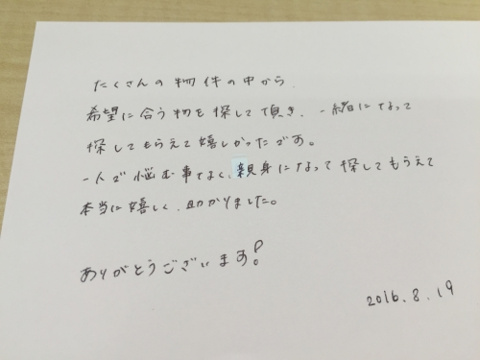 たくさんの物件の中から、
希望に合う物を探して頂き、一緒になって
探してもらえて嬉しかったです。
一人で悩む事なく、親身になって探してもらえて
本当に嬉しく、助かりました。
ありがとうございます!
2016.8.19